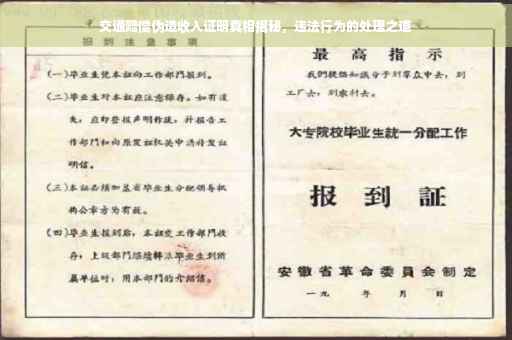 交通赔偿伪造收入证明真相揭秘，违法行为的处理之道
报到注意事项
(一)毕业生凭本证向工作部门报到。
(二)毕业生对本证应注意保存。如有遗
失，应即登报声明作废，并报告工
作部门和向原发证机关申请补发证
明信。
(三)本证必须加盖省毕业生分配领导机
构公章方为有效。
(四)毕业生报到后，本证交工作部门收
存；上级部门继续转派毕业生到所
属单位时，用本部门的介绍信。
最高指示
我们提倡知识分子到群众中去，到
工厂去，到农村去。
大专院校毕业生统一分配工作
报到证
安徽省革命委员会制定
一九 年 月 日